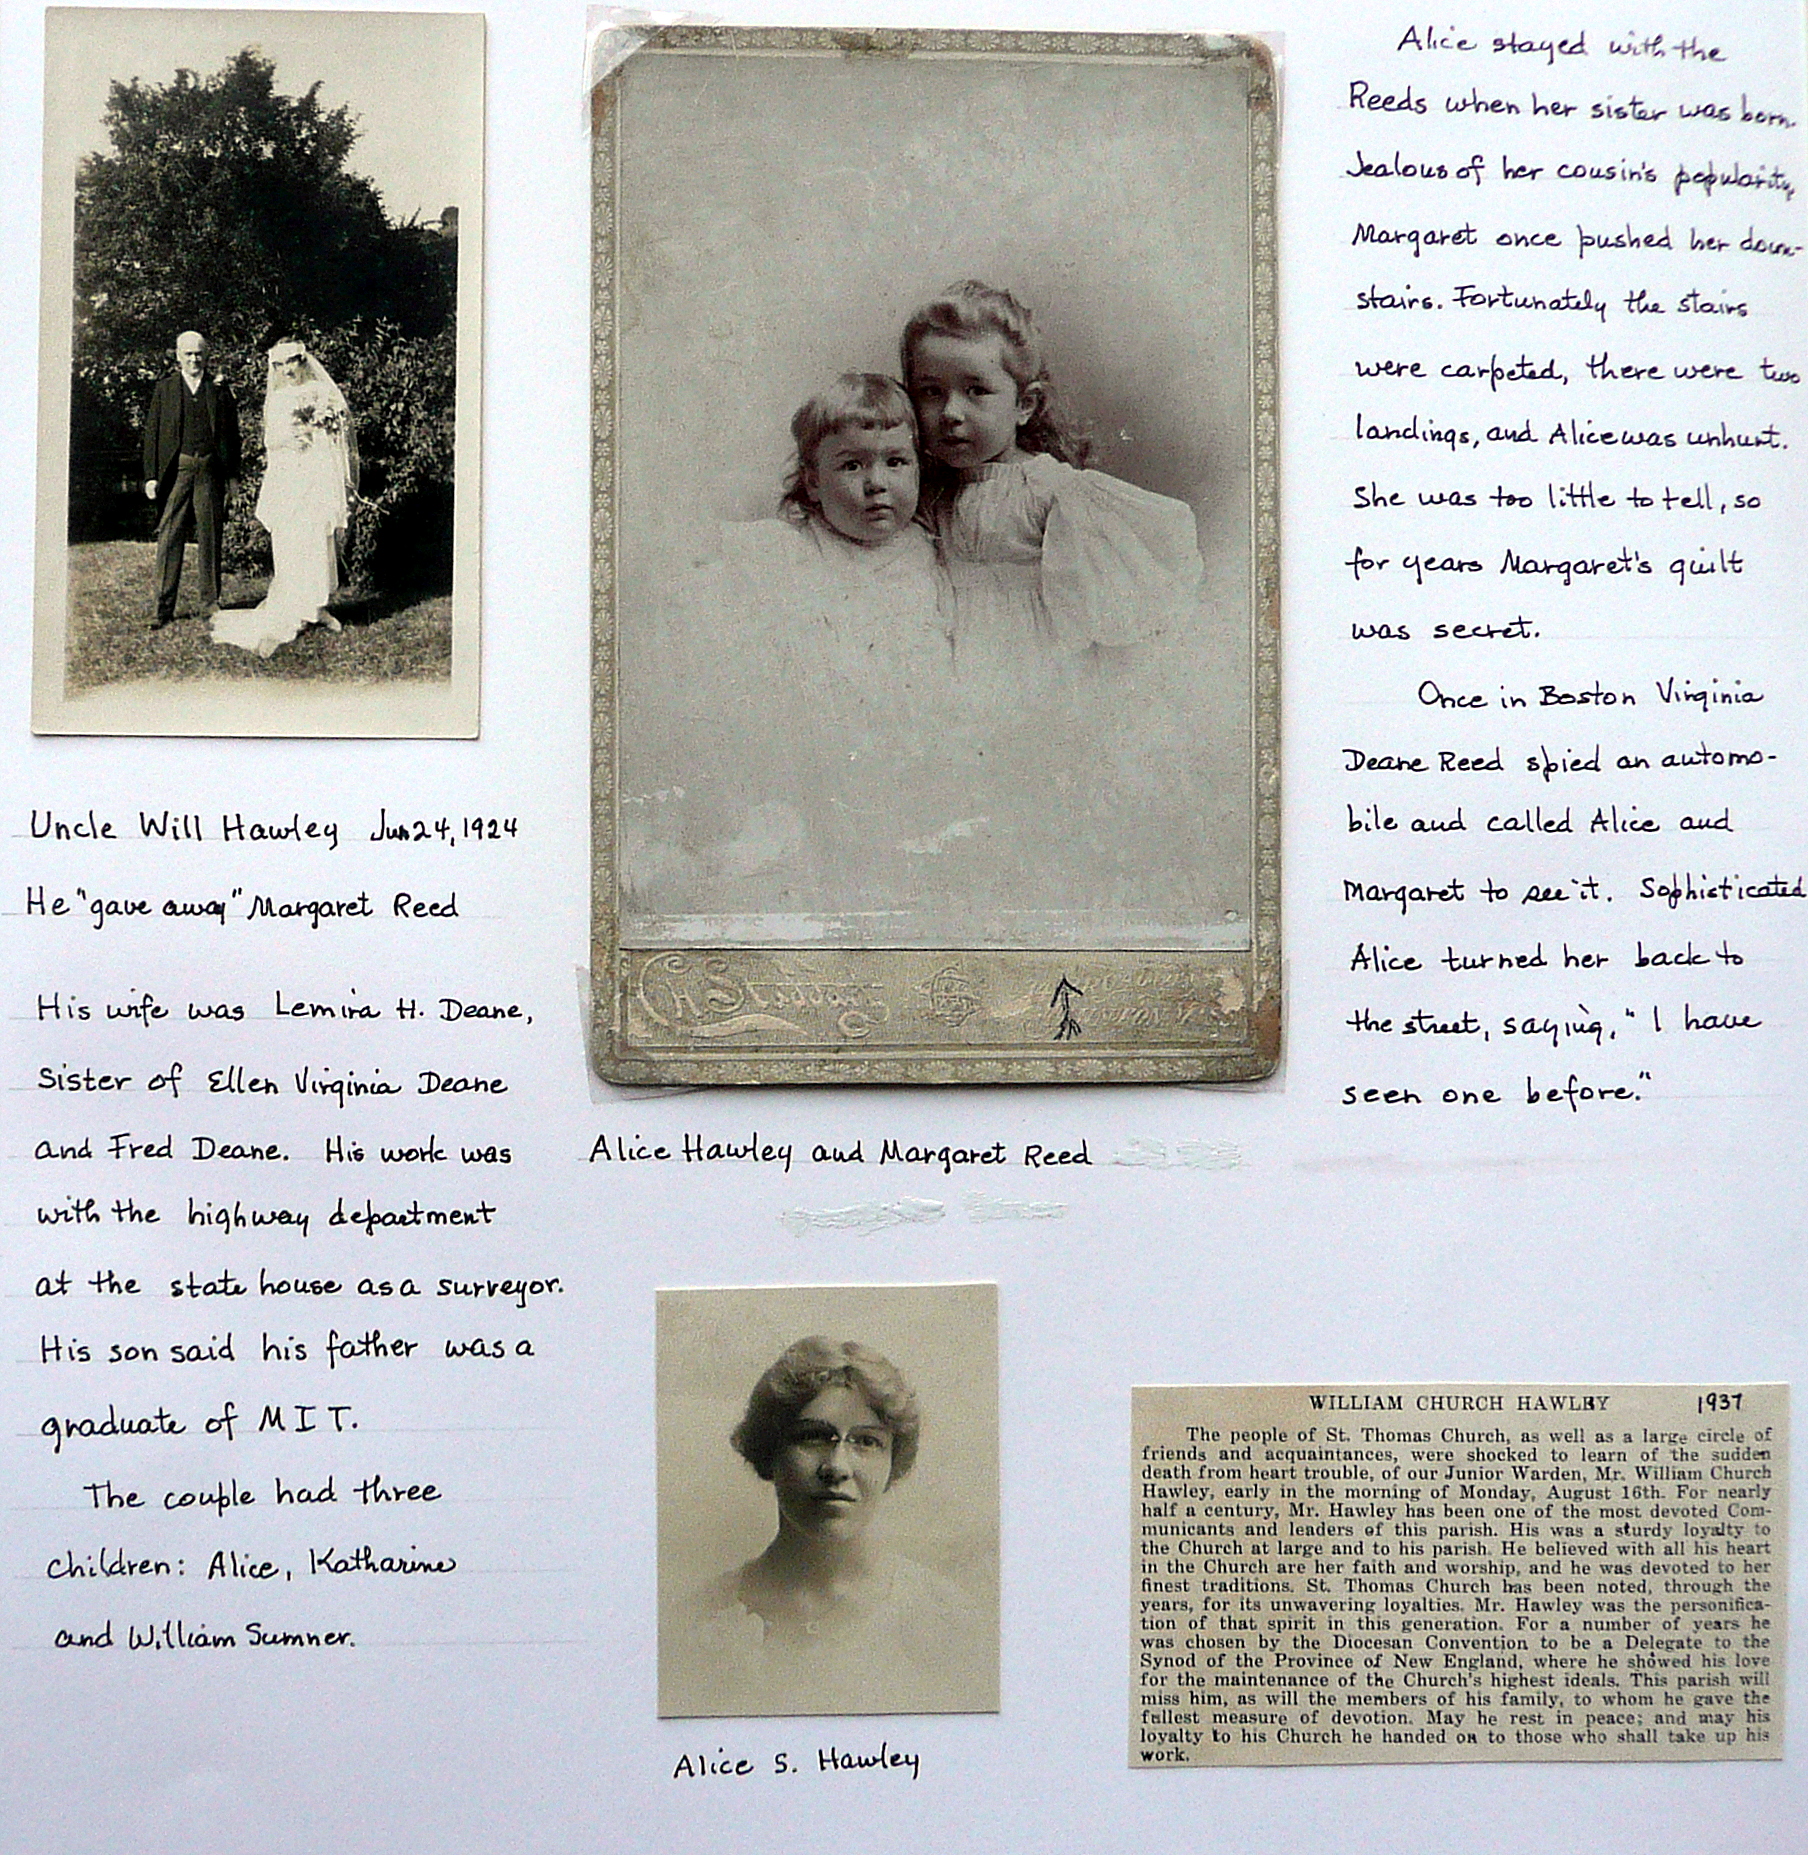 Uncle Will Hawley Jun 24, 1924
He "gave away" Margaret Reed
His wife was Lemira H. Deane,
Sister of Ellen Virginia Deane
and Fred Deane. His work was
with the highway department
at the state house as a surveyor.
His son said his father was a
graduate of MIT.
The couple had three
children: Alice, Katharine
and William Sumner.
Alice Hawley and Margaret Reed
Alice S. Hawley
Alice stayed with the
Reeds when her sister was born.
Jealous of her cousin's popularity,
Margaret once pushed her down-
stairs. Fortunately the stairs
were carpeted, there were two
landings, and Alice was unhurt.
She was too little to tell, so
for years Margaret's quilt
was secret.
Once in Boston Virginia
Deane Reed spied an automo-
bile and called Alice and
Margaret to see it. Sophisticated
Alice turned her back to
the street, saying, "I have
seen one before."
WILLIAM CHURCH HAWLEY 1937
The people of St. Thomas Church, as well as a large circle of
friends and acquaintances, were shocked to learn of the sudden
death from heart trouble, of our Junior Warden, Mr. William Church
Hawley, early in the morning of Monday, August 16th. For nearly
half a century, Mr. Hawley has been one of the most devoted Com-
municants and leaders of this parish. His was a sturdy loyalty to
the Church at large and to his parish. He believed with all his heart
in the Church are her faith and worship, and he was devoted to her
finest traditions. St. Thomas Church has been noted, through the
years, for its unwavering loyalties. Mr. Hawley was the personifica-
tion of that spirit in this generation. For a number of years he
was chosen by the Diocesan Convention to be a Delegate to the
Synod of the Province of New England, where he showed his love
for the maintenance of the Church's highest ideals. This parish will
miss him, as will the members of his family, to whom he gave the
fullest measure of devotion. May he rest in peace; and may his
loyalty to his Church he handed on to those who shall take up his
work.